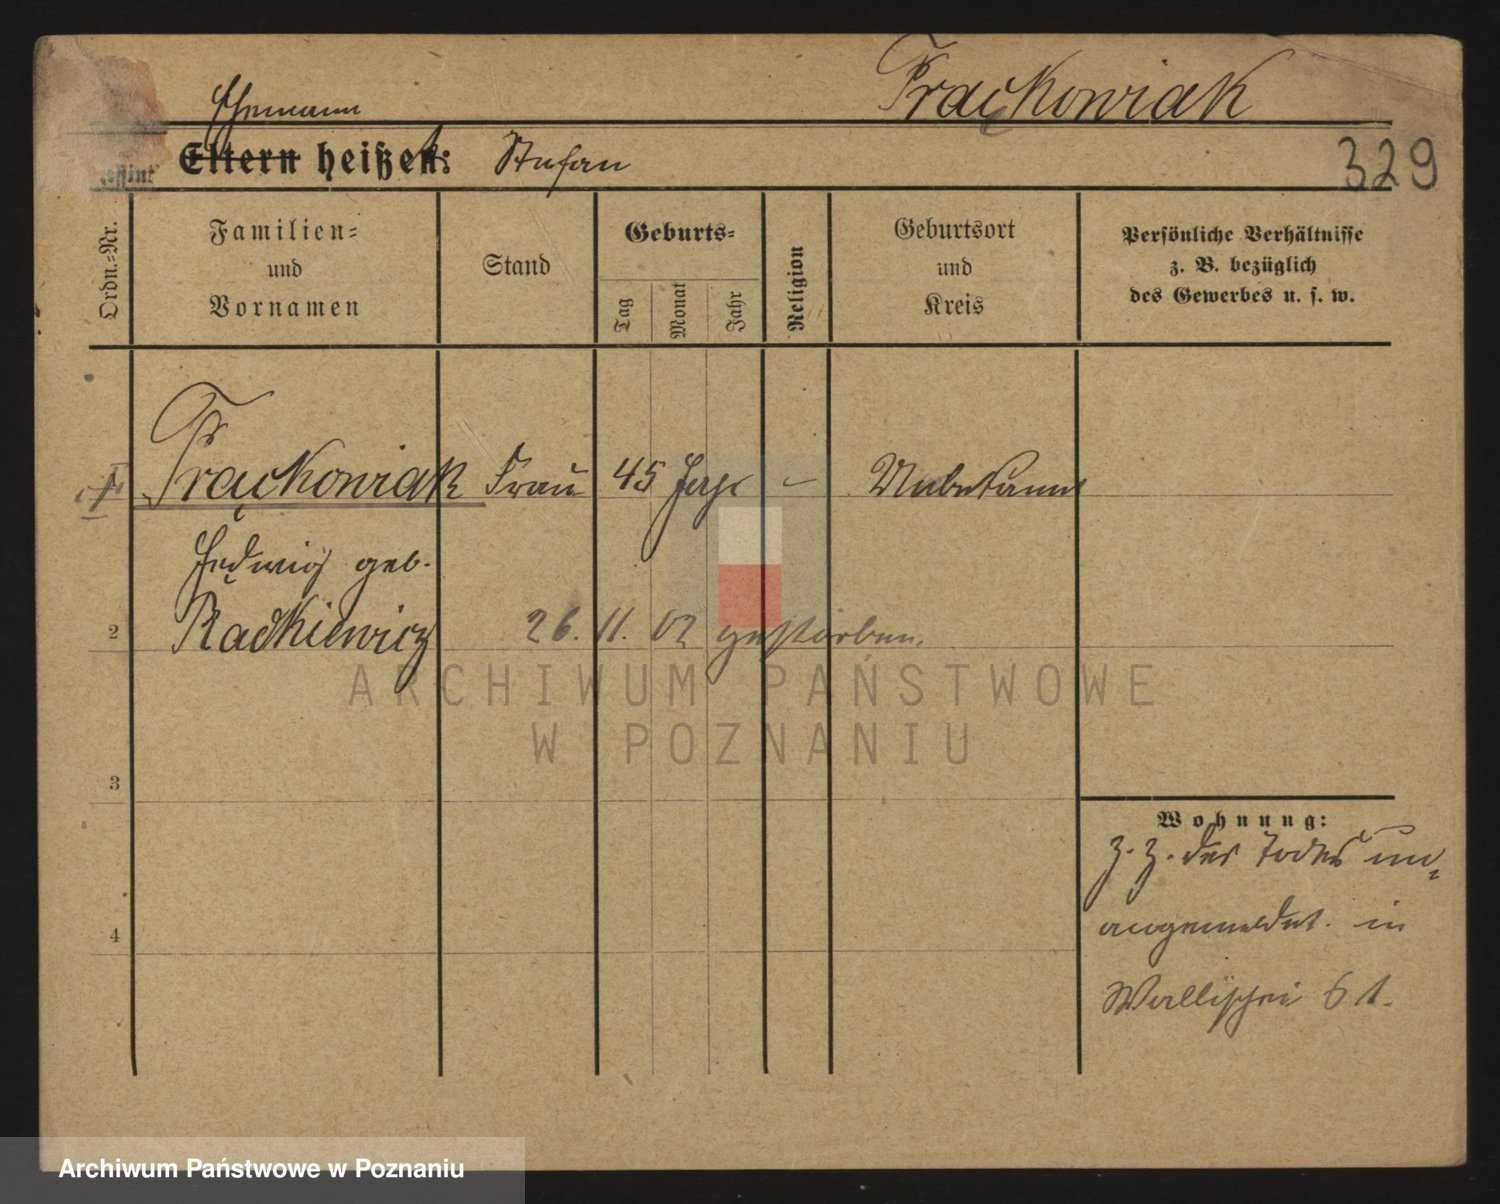 Frąckowiak
Ehemann
Eltern heißen: Stefan
329
Ordn.-Nr.
Familien-
und
Vornamen
Stand
Geburts-
Tag
Monat
Jahr
Religion
Geburtsort
und
Kreis
Persönliche Verhältnisse
z. B. bezüglich
des Gewerbes u. s. w.
Frąckowiak Frau 45 Jahr - Unbekannt
Hedwig geb.
2 Radkiewicz 26. 11. 02 gestorben.
ARCHIWUM PAŃSTWOWE
W POZNANIU
3
Wohnung:
z. Z. des Todes un-
angemeldet in
4
Wallischei 61.
Archiwum Państwowe w Poznaniu